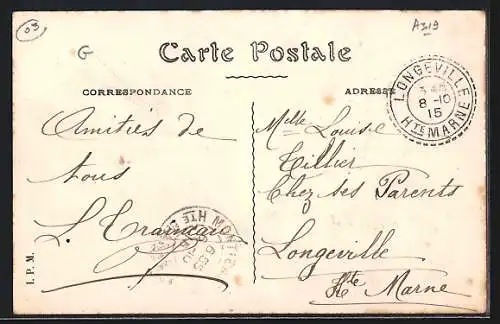 03
G
A319
Carte Postale
CORRESPONDANCE
ADRESSE
LONGEVILLE
3 45
8 -10
15
HTE MARNE
Amitiés de
tous
L. Traineau
MONTIER
HTE
Melle Louise
Tillier
Chez ses Parents
Longeville
Hte Marne
I. P. M.